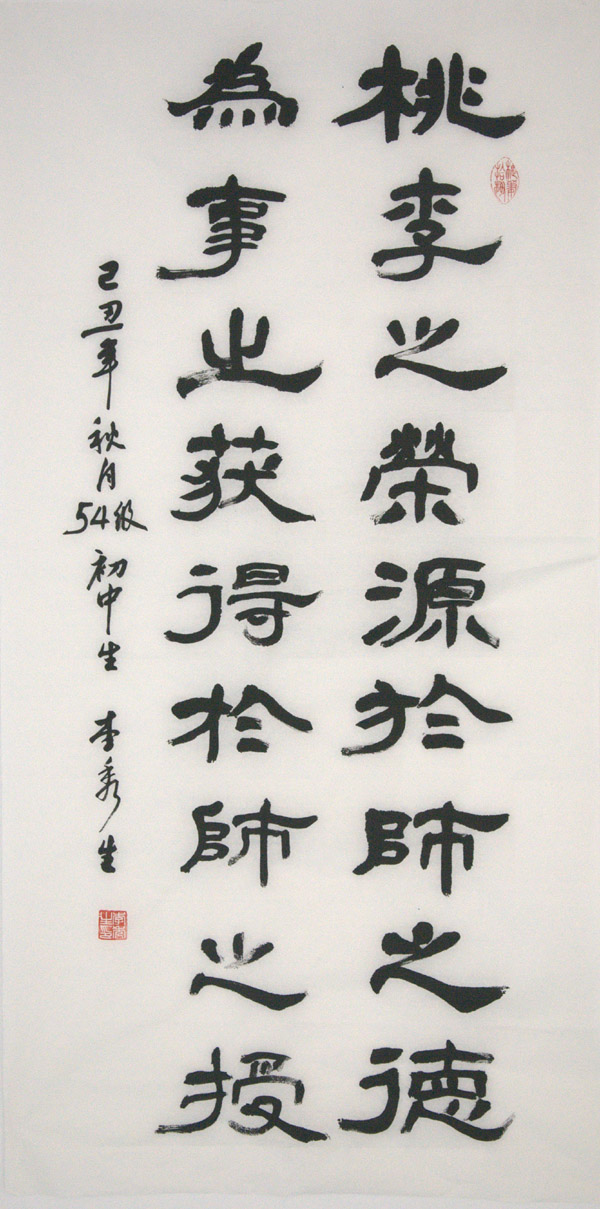 桃李之榮源於師之德
為事之获得於師之授
己丑年秋月54级初中生 李秀生